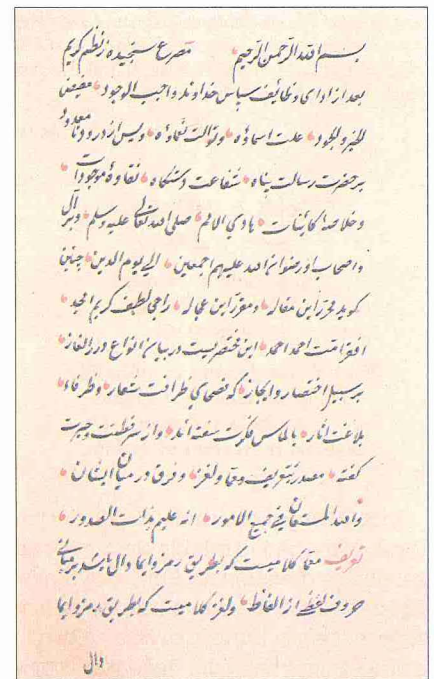 بسم الله الرحمن الرحیم مصرع سنجیده ز نظم کریم
بعد از ادای وظایف سپاس خداوند واجب الوجود مفیض
الخیر و الجود علت اسماؤه و توالت نعماؤه و پس از درود نامعدود
بر حضرت رسالت پناه شفاعت دستگاه نقاوهٔ موجودات
و خلاصهٔ کاینات هادی الامم صلی الله تعالی علیه وسلم و بر آل
و اصحاب او رضوان الله علیهم اجمعین الی یوم الدین چنین
گوید محرر این مقاله و مقرر این عجاله راجی لطف کریم المجید
افقر امت احمد احمد این مختصریست در بیان انواع در الغاز
بر سبیل اختصار و ایجاز که فصحای ظرافت شعار و ظرفاء
بلاغت آثار بالماس فکرت سفته اند و از سر فطنت و حیرت
گفته مصدر بتعریف معما و لغز و فرق در میان ایشان
والله المستعان فی جمیع الامور انه علیم بذات الصدور
تعریف معما کلامیست که بطریق رمز و ایما دال باشد بر مبانی
حروف لفظی از الفاظ و لغز کلامیست که بطریق رمز و ایما
دال